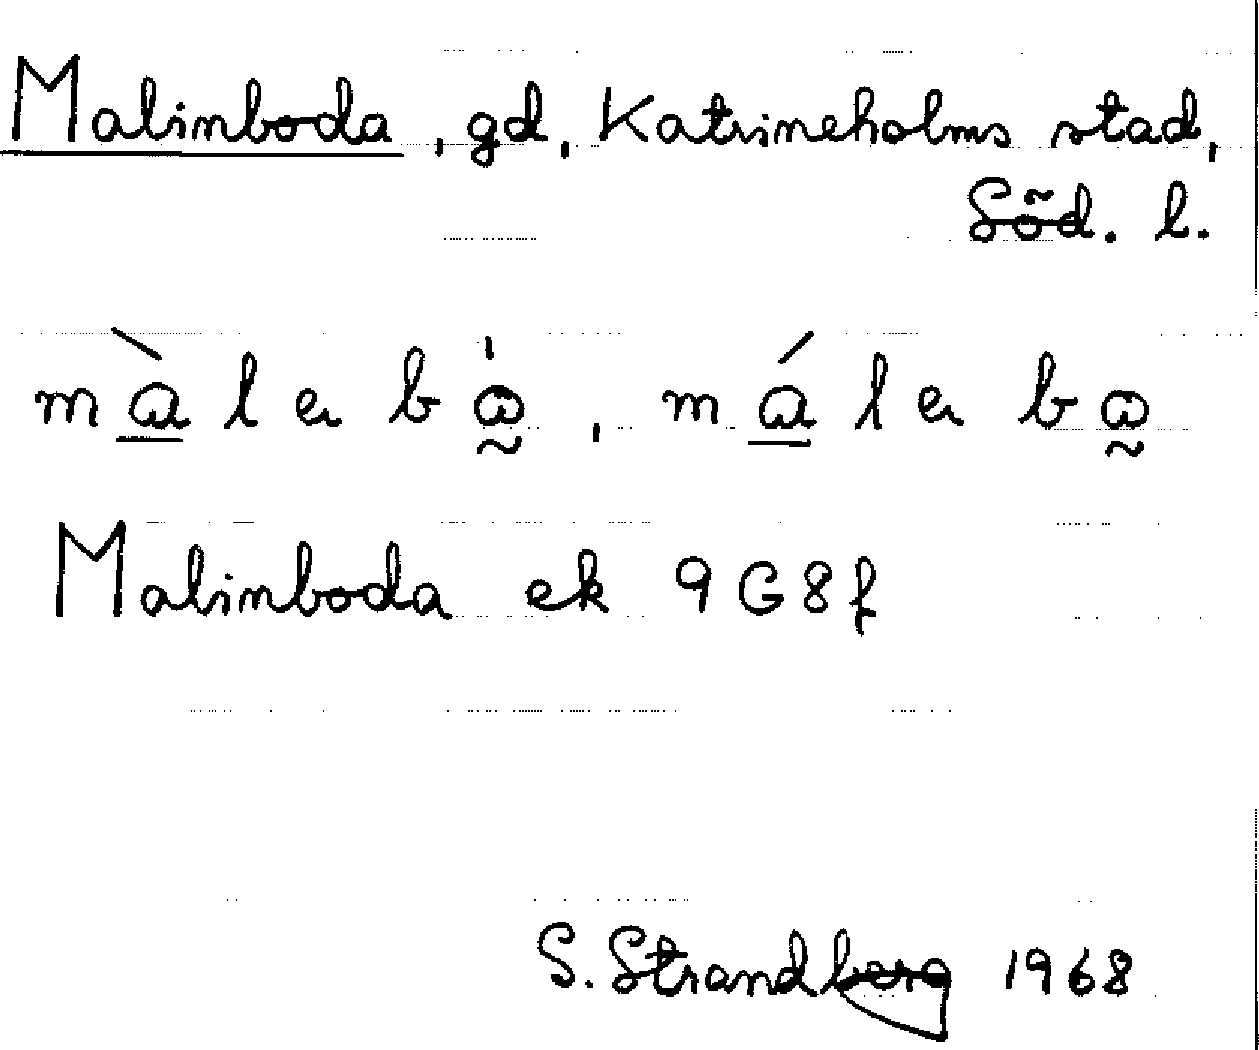 Malinboda, gd, Katrineholms stad,
Söd. l.
Malinboda ek 9G8f
S. Strandberg 1968